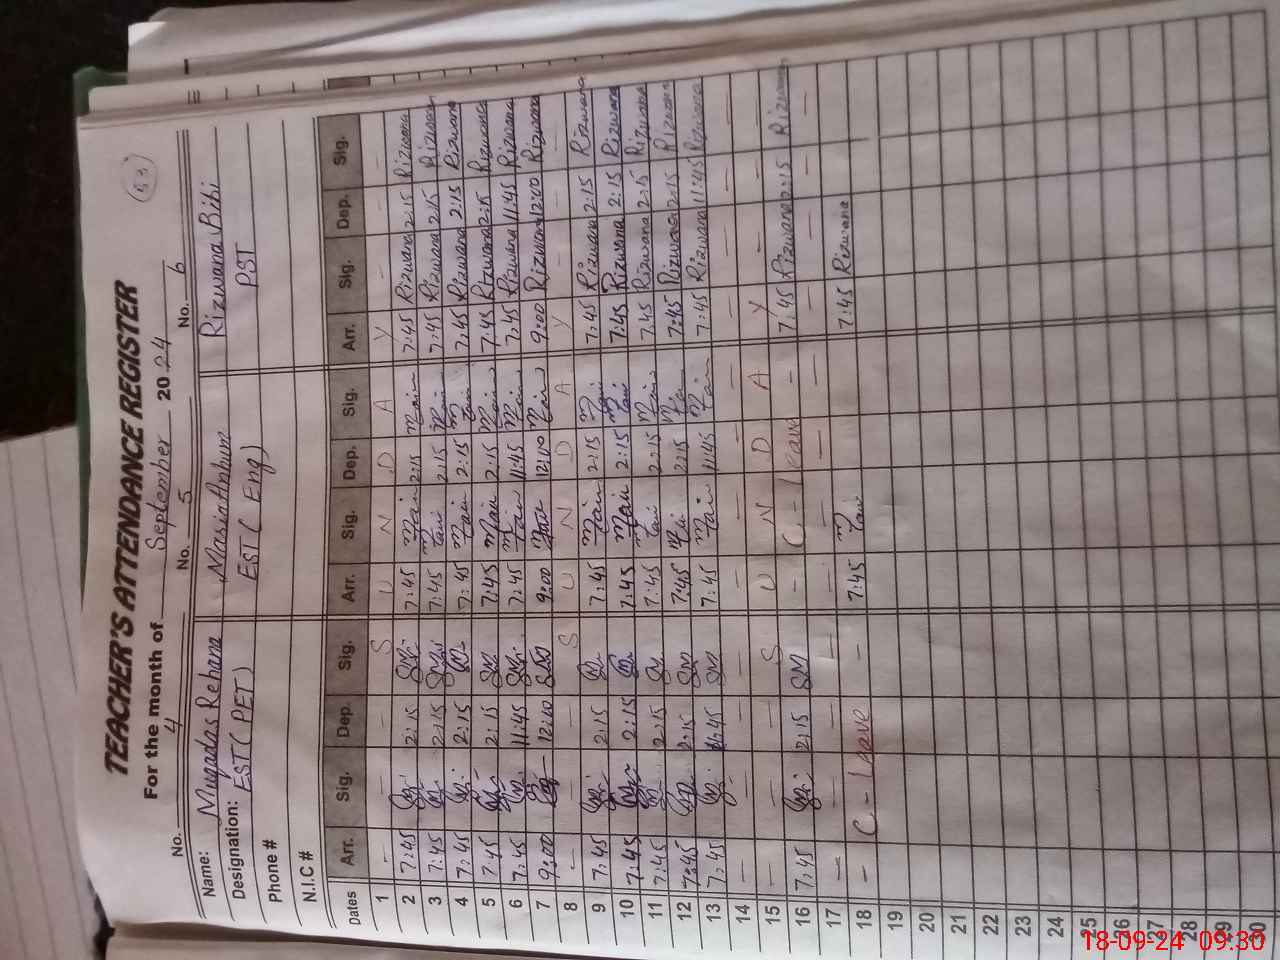 53
TEACHER'S ATTENDANCE REGISTER
For the month of September 2024
No. 4 No. 5 No. 6
Name: Muqadas Rehana Rizwana Bibi
Designation: EST (PET) EST (Eng) PST
Phone #
N.I.C #
Dates Arr. Sig. Dep. Sig. Arr. Sig. Dep. Sig. Arr. Sig. Dep. Sig.
1 — — — S U N D A Y — — —
2 7:45 2:15 7:45 2:15 7:45 Rizwana 2:15 Rizwana
3 7:45 2:15 7:45 2:15 7:45 Rizwana 2:15 Rizwana
4 7:45 2:15 7:45 2:15 7:45 Rizwana 2:15 Rizwana
5 7:45 2:15 7:45 2:15 7:45 Rizwana 2:15 Rizwana
6 7:45 11:45 7:45 11:45 7:45 Rizwana 11:45 Rizwana
7 9:00 12:00 9:00 12:00 9:00 Rizwana 12:00 Rizwana
8 — — — S U N D A Y — — —
9 7:45 2:15 7:45 2:15 7:45 Rizwana 2:15 Rizwana
10 7:45 2:15 7:45 2:15 7:45 Rizwana 2:15 Rizwana
11 7:45 2:15 7:45 2:15 7:45 Rizwana 2:15 Rizwana
12 7:45 2:15 7:45 2:15 7:45 Rizwana 2:15 Rizwana
13 7:45 11:45 7:45 11:45 7:45 Rizwana 11:45 Rizwana
14 — — — — — — — — — — — —
15 — — — S U N D A Y — — —
16 7:45 2:15 SM — C - Leave — 7:45 Rizwana 2:15 Rizwana
17 — — — — — — — — — — — —
18 — C - Leave — 7:45 7:45 Rizwana
19
20
21
22
23
24
25
26
27
28
29
30
18-09-24 09:30